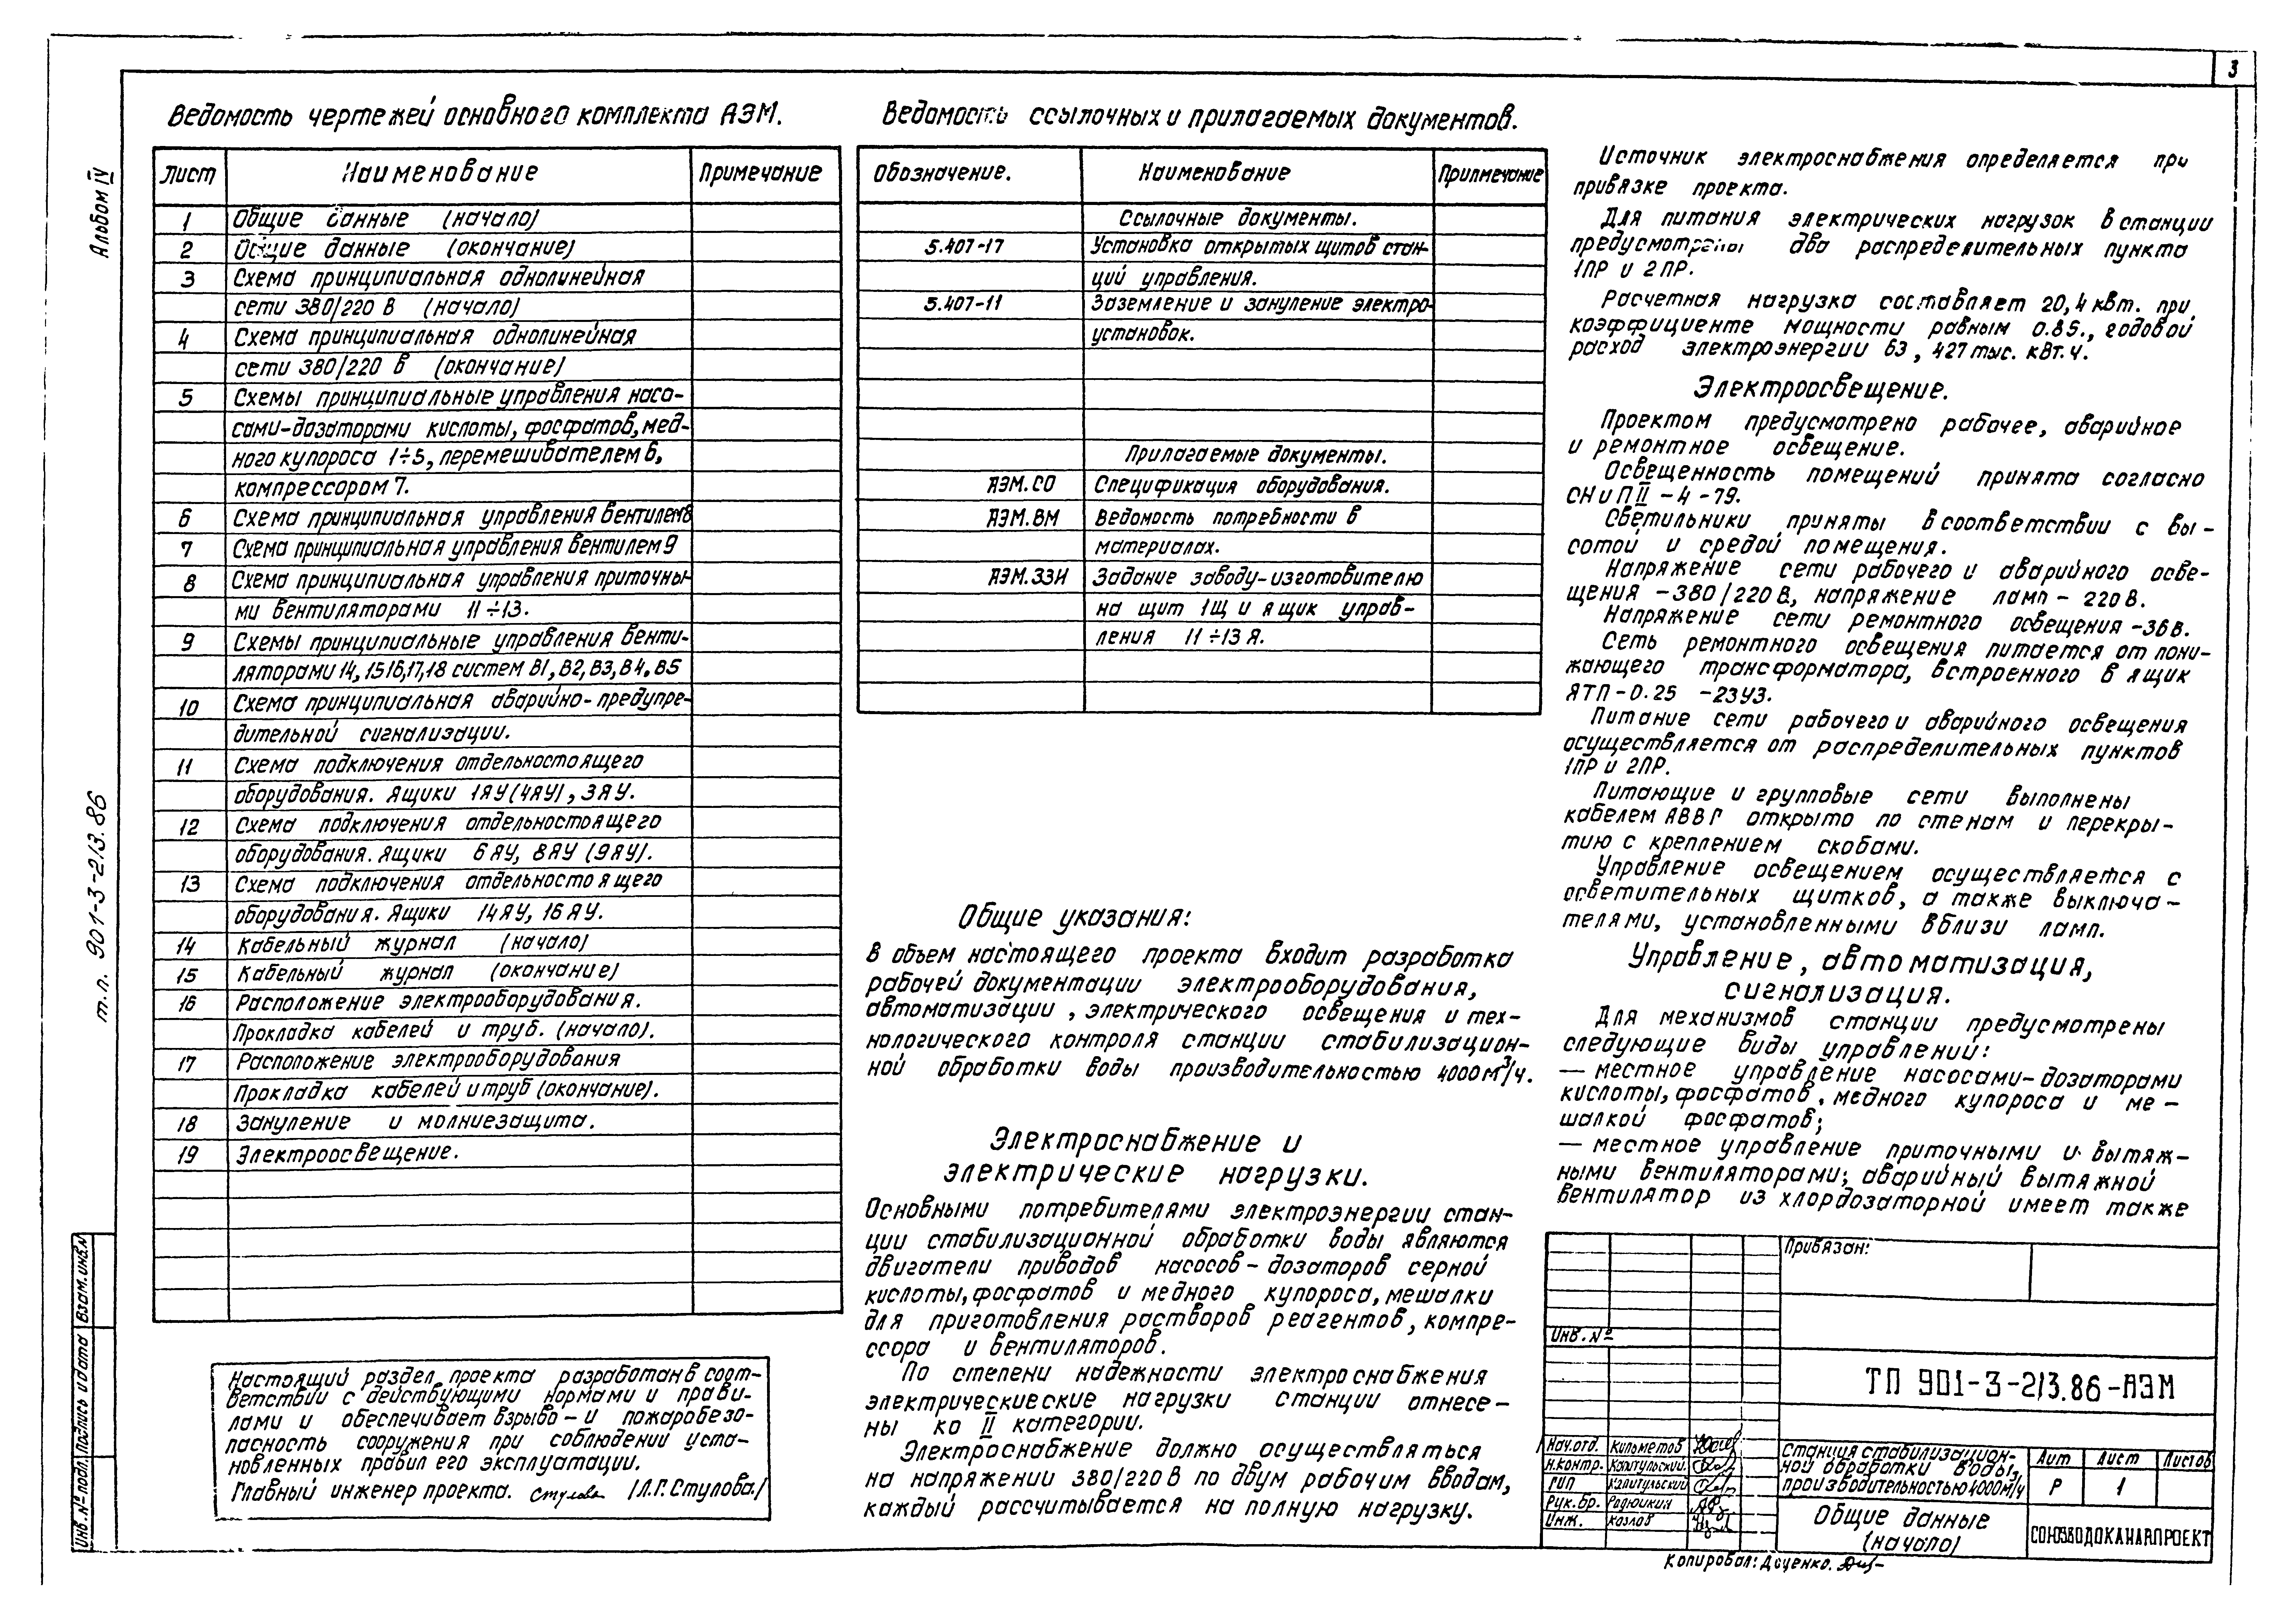 3
Альбом IV
т.п. 901-3-213.86
Ведомость чертежей основного комплекта АЭМ.
Лист Наименование Примечание
1 Общие данные (начало)
2 Общие данные (окончание)
3 Схема принципиальная однолинейная
сети 380/220 В (начало)
4 Схема принципиальная однолинейная
сети 380/220 В (окончание)
5 Схемы принципиальные управления насо-
сами-дозаторами кислоты, фосфатов, мед-
ного купороса 1÷5, перемешивателем 6,
компрессором 7.
6 Схема принципиальная управления вентилем 8
7 Схема принципиальная управления вентилем 9
8 Схема принципиальная управления приточны-
ми вентиляторами 11÷13.
9 Схемы принципиальные управления венти-
ляторами 14, 15 16, 17, 18 систем В1, В2, В3, В4, В5
10 Схема принципиальная аварийно-предупре-
дительной сигнализации.
11 Схема подключения отдельностоящего
оборудования. Ящики 1ЯУ (4ЯУ), 3ЯУ.
12 Схема подключения отдельностоящего
оборудования. Ящики 6ЯУ, 8ЯУ (9ЯУ).
13 Схема подключения отдельностоящего
оборудования. Ящики 14ЯУ, 16ЯУ.
14 Кабельный журнал (начало)
15 Кабельный журнал (окончание)
16 Расположение электрооборудования.
Прокладка кабелей и труб. (начало).
17 Расположение электрооборудования
Прокладка кабелей и труб (окончание).
18 Зануление и молниезащита.
19 Электроосвещение.
Настоящий раздел проекта разработан в соот-
ветствии с действующими нормами и прави-
лами и обеспечивает взрыво-и пожаробезо-
пасность сооружения при соблюдении уста-
новленных правил его эксплуатации.
Главный инженер проекта. /Л.Г. Стулова/
Ведомость ссылочных и прилагаемых документов.
Обозначение. Наименование Припмечание
Ссылочные документы.
5.407-17 Установка открытых щитов стан-
ций управления.
5.407-11 Заземление и зануление электро-
установок.
Прилагаемые документы.
АЭМ.СО Спецификация оборудования.
АЭМ.ВМ Ведомость потребности в
материалах.
АЭМ.ЗЗИ Задание заводу-изготовителю
на щит 1Щ и ящик управ-
ления 11÷13Я.
Общие указания:
В объем настоящего проекта входит разработка
рабочей документации электрооборудования,
автоматизации, электрического освещения и тех-
нологического контроля станции стабилизацион-
ной обработки воды производительностью 4000м³/ч.
Электроснабжение и
электрические нагрузки.
Основными потребителями электроэнергии стан-
ции стабилизационной обработки воды являются
двигатели приводов насосов-дозаторов серной
кислоты, фосфатов и медного купороса, мешалки
для приготовления растворов реагентов, компре-
ссора и вентиляторов.
По степени надежности электроснабжения
электрическиеские нагрузки станции отнесе-
ны ко II категории.
Электроснабжение должно осуществляться
на напряжении 380/220 В по двум рабочим вводам,
каждый рассчитывается на полную нагрузку.
Источник электроснабжения определяется при
привязке проекта.
Для питания электрических нагрузок в станции
предусмотрены два распределительных пункта
1ПР и 2ПР.
Расчетная нагрузка составляет 20,4 квт. при
коэффициенте мощности равным 0.85., годовой
расход электроэнергии 63,427 тыс. квт. ч.
Электроосвещение.
Проектом предусмотрено рабочее, аварийное
и ремонтное освещение.
Освещенность помещений принята согласно
СНиП II-4-79.
Светильники приняты в соответствии с вы-
сотой и средой помещения.
Напряжение сети рабочего и аварийного осве-
щения -380/220 В, напряжение ламп - 220 В.
Напряжение сети ремонтного освещения -36 В.
Сеть ремонтного освещения питается от пони-
жающего трансформатора, встроенного в ящик
ЯТП-0.25 -23У3.
Питание сети рабочего и аварийного освещения
осуществляется от распределительных пунктов
1ПР и 2ПР.
Питающие и групповые сети выполнены
кабелем АВВГ открыто по стенам и перекры-
тию с креплением скобами.
Управление освещением осуществляется с
осветительных щитков, а также выключа-
телями, установленными вблизи ламп.
Управление, автоматизация,
сигнализация.
Для механизмов станции предусмотрены
следующие виды управлений:
— местное управление насосами-дозаторами
кислоты, фосфатов, медного купороса и ме-
шалкой фосфатов;
— местное управление приточными и вытяж-
ными вентиляторами; аварийный вытяжной
вентилятор из хлордозаторной имеет также
Привязан:
Инв. №
ТП 901-3-213.86-АЭМ
Нач.отд. Кильметов
Н.контр. Капитульский
ГИП Капитульский
Рук.бр. Радюикин
Инж. Козлов
Станция стабилизацион-
ной обработки воды,
производительностью 4000м/ч
Лит Лист Листов
Р 1
Общие данные
(начало)
СОЮЗВОДОКАНАЛПРОЕКТ
Копировал: Доценко.
Инв. № подл. Подпись и дата Взам. инв. №